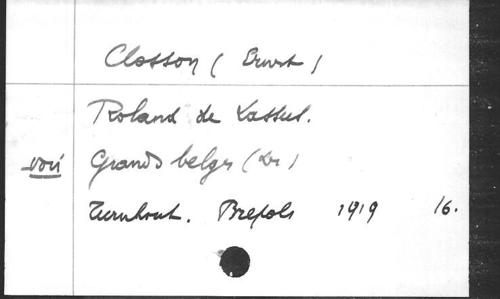 Closson (Ernst)
Roland de Lassus.
voir Grands belges (Les)
Turnhout. Brepols 1919 16.